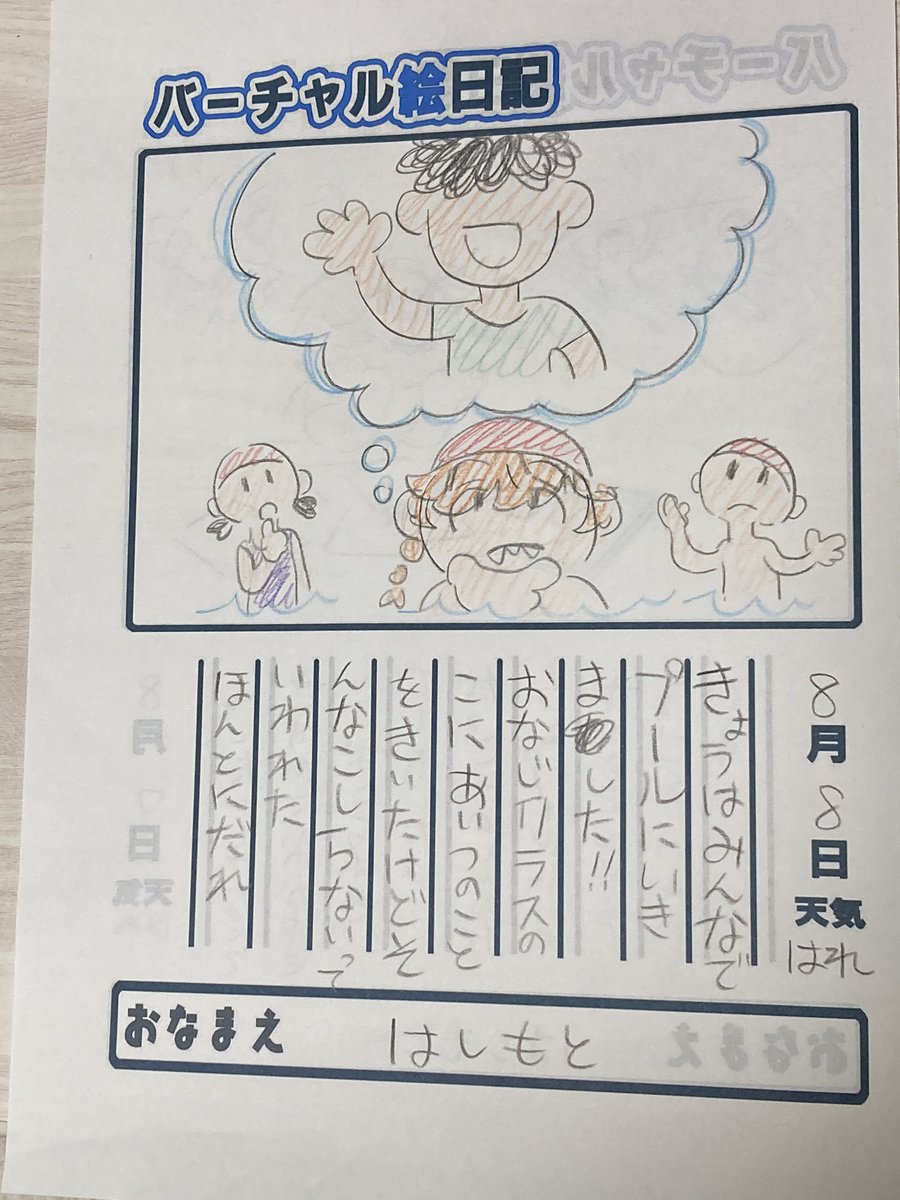 バーチャル絵日記
8月8日
天気
はれ
きょうはみんなで
プールにいき
ました!!
おなじクラスの
こにあいつのこと
をきいたけどそ
んなこしらないっ
いわれた
ほんとにだれ
おなまえ
はしもと